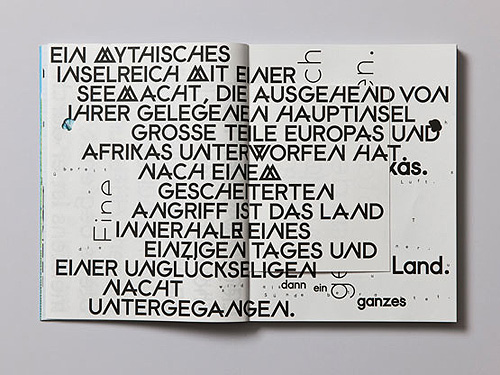 EIN MYTHISCHES
INSELREICH MIT EINER
SEEMACHT, DIE AUSGEHEND VON
IHRER GELEGENEN HAUPTINSEL
GROSSE TEILE EUROPAS UND
AFRIKAS UNTERWORFEN HAT
NACH EINEM
GESCHEITERTEN
ANGRIFF IST DAS LAND
INNERHALB EINES
EINZIGEN TAGES UND
EINER UNGLÜCKSELIGEN
NACHT
UNTERGEGANGEN.
ch
Eine
Luft.
Land.
dann ein
ganzes